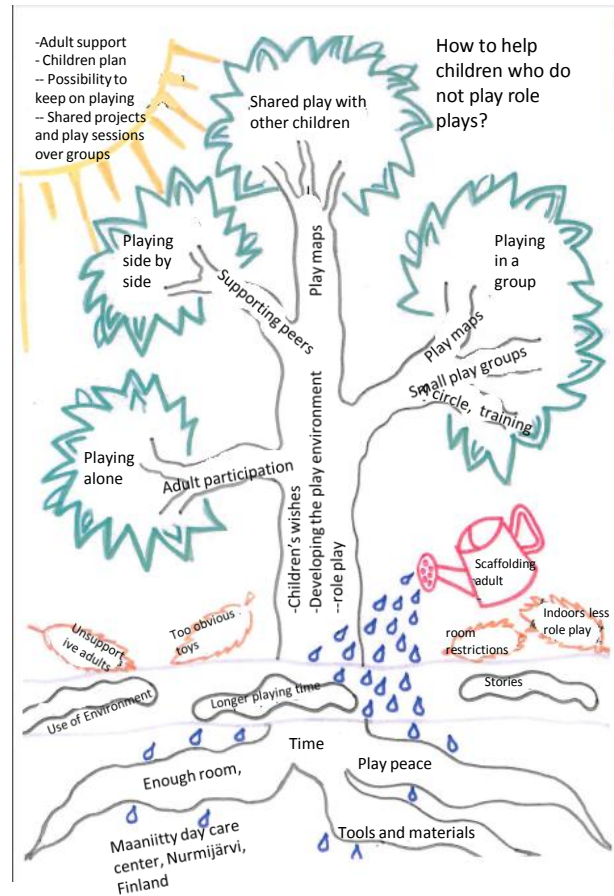 -Adult support
- Children plan
-- Possibility to
keep on playing
-- Shared projects
and play sessions
over groups
How to help
children who do
not play role
plays?
Shared play with
other children
Playing
side by
side
Supporting peers
Play maps
Playing
in a
group
Play maps
Small play groups
circle, training
Playing
alone
Adult participation
-Children's wishes
-Developing the play environment
--role play
Scaffolding
adult
-
Unsupport
ive adults
Too obvious
toys
room
restrictions
Indoors less
role play
Use of Environment
Longer playing time
Stories
Time
Enough room,
Play peace
Maaniitty day care
center, Nurmijärvi,
Finland
Tools and materials